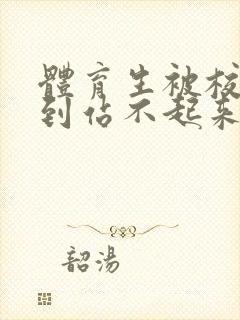 體育生被校
到佔不起來
韶湯